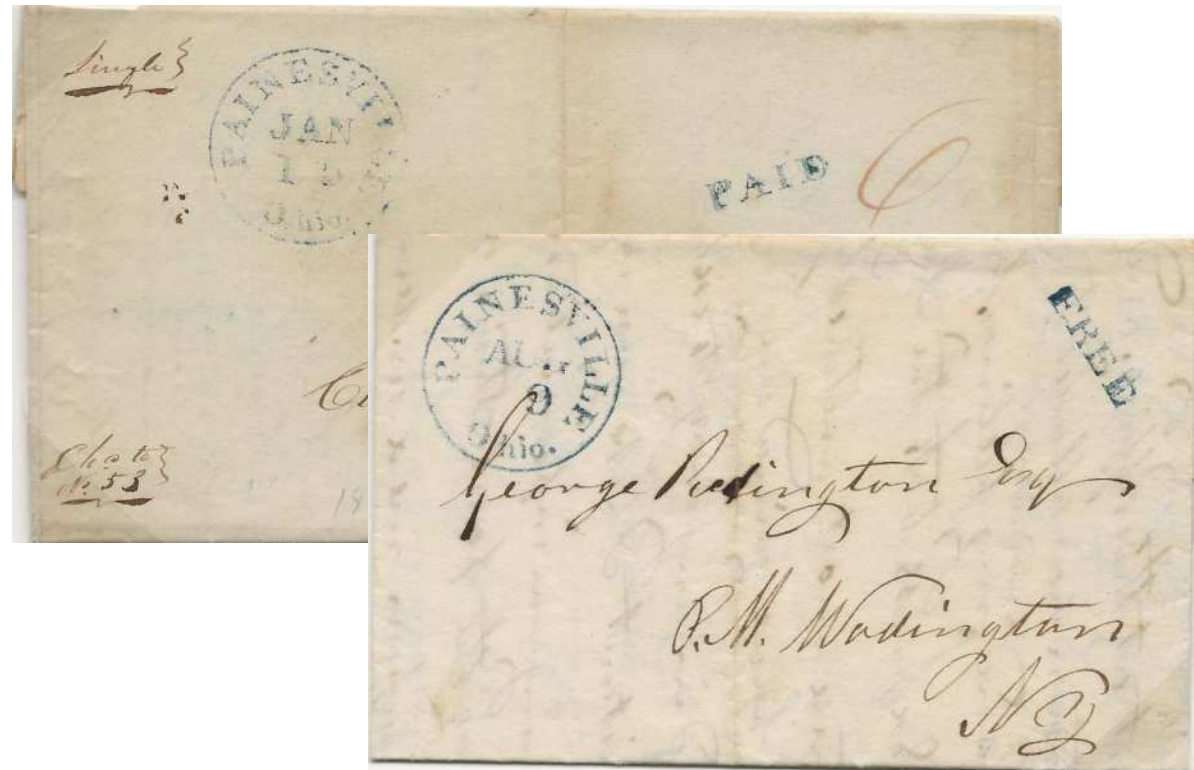 Single
PAINESVILLE
JAN
15
Ohio.
PAID 6
PAINESVILLE
AUG
9
Ohio.
FREE
George Redington Esq
P.M. Wadington
NY